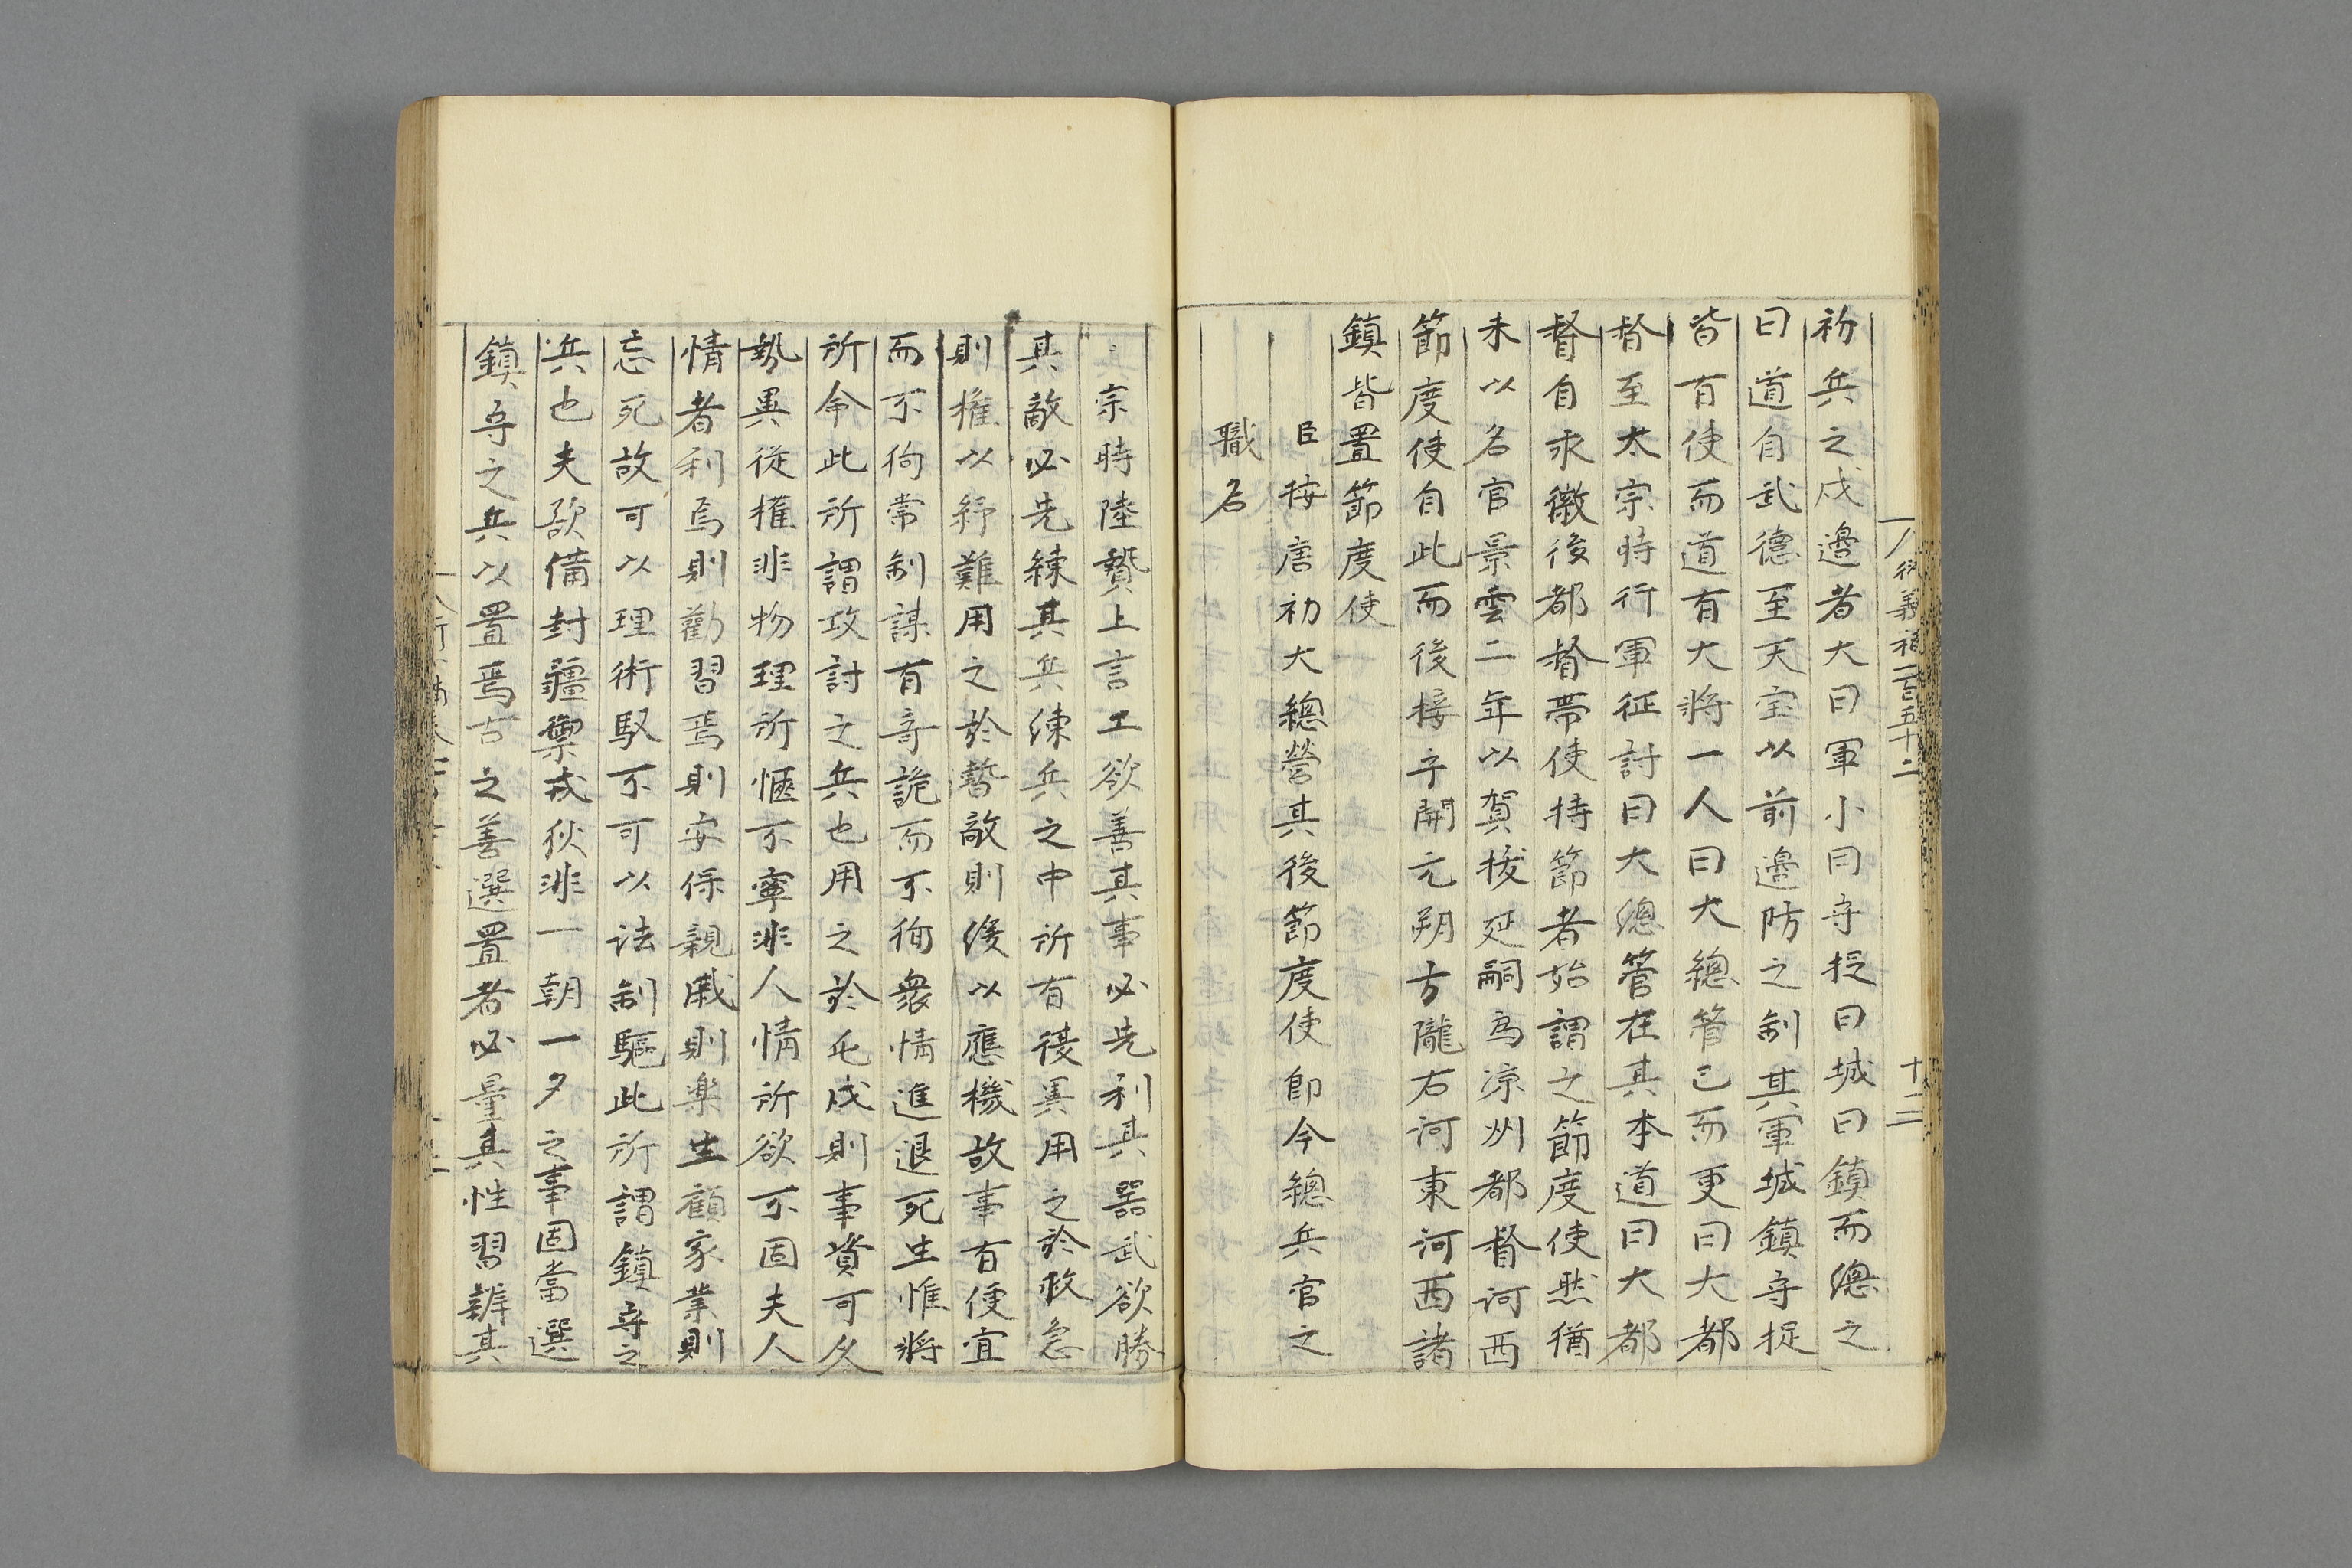 衍義補一百五十二 十二
初兵之戍邊者大曰軍小曰守捉曰城曰鎮而總之
曰道自武德至天宝以前邊防之制其軍城鎮守捉
皆有使而道有大將一人曰大總管已而更曰大都
督至太宗時行軍征討曰大總管在其本道曰大都
督自永徽後都督帶使持節者始謂之節度使然猶
未以名官景雲二年以賀拔延嗣為涼州都督河西
節度使自此而後接乎開元朔方隴右河東河西諸
鎮皆置節度使
臣按唐初大總營其後節度使即今總兵官之
職名
宗時陸贄上言工欲善其事必先利其器武欲勝
其敵必先練其兵練兵之中所有後異用之於救急
則權以紓難用之於暫敵則緩以應機故事有便宜
而不徇常制謀有奇詭而不徇衆情進退死生惟將
所命此所謂攻討之兵也用之於屯戍則事資可久
勢異從權非物理所愜不寧非人情所欲不固夫人
情者利焉則勸習焉則安保親戚則楽生顧家業則
忘死故可以理術馭不可以法制驅此所謂鎮守之
兵也夫欲備封疆禦戎狄非一朝一夕之事固當選
鎮守之兵以置焉古之善選置者必量其性習辨其